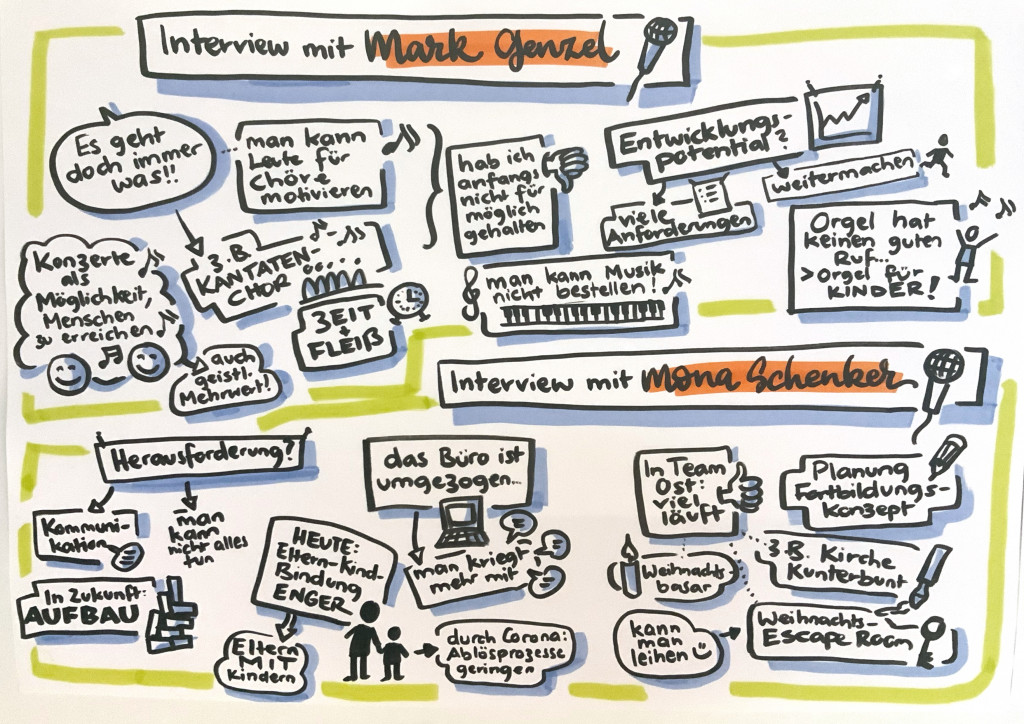 Interview mit Mark Genzel
Es geht
doch immer
was!!
man kann
Leute für
Chöre
motivieren
z.B.
KANTATEN-
CHOR
ZEIT
+
FLEIß
Konzerte
als
Möglichkeit,
Menschen
zu erreichen
auch
geistl.
Mehrwert!
hab ich
anfangs
nicht für
möglich
gehalten
Entwicklungs-
potential?
viele
Anforderungen
weitermachen
man kann Musik
nicht bestellen!
Orgel hat
keinen guten
Ruf...
>Orgel für
KINDER!
Interview mit Mona Schenker
Herausforderung?
Kommuni-
kation
man
kann
nicht alles
tun
In Zukunft:
AUFBAU
HEUTE:
Eltern-Kind-
Bindung
ENGER
Eltern
MIT
Kindern
durch Corona:
Ablösprozesse
geringen
das Büro ist
umgezogen...
man kriegt
mehr mit
In Team
Ost:
viel
läuft
Planung
Fortbildungs-
konzept
Weihnachts
basar
z.B. Kirche
Kunterbunt
Weihnachts-
Escape Room
kann
man
leihen